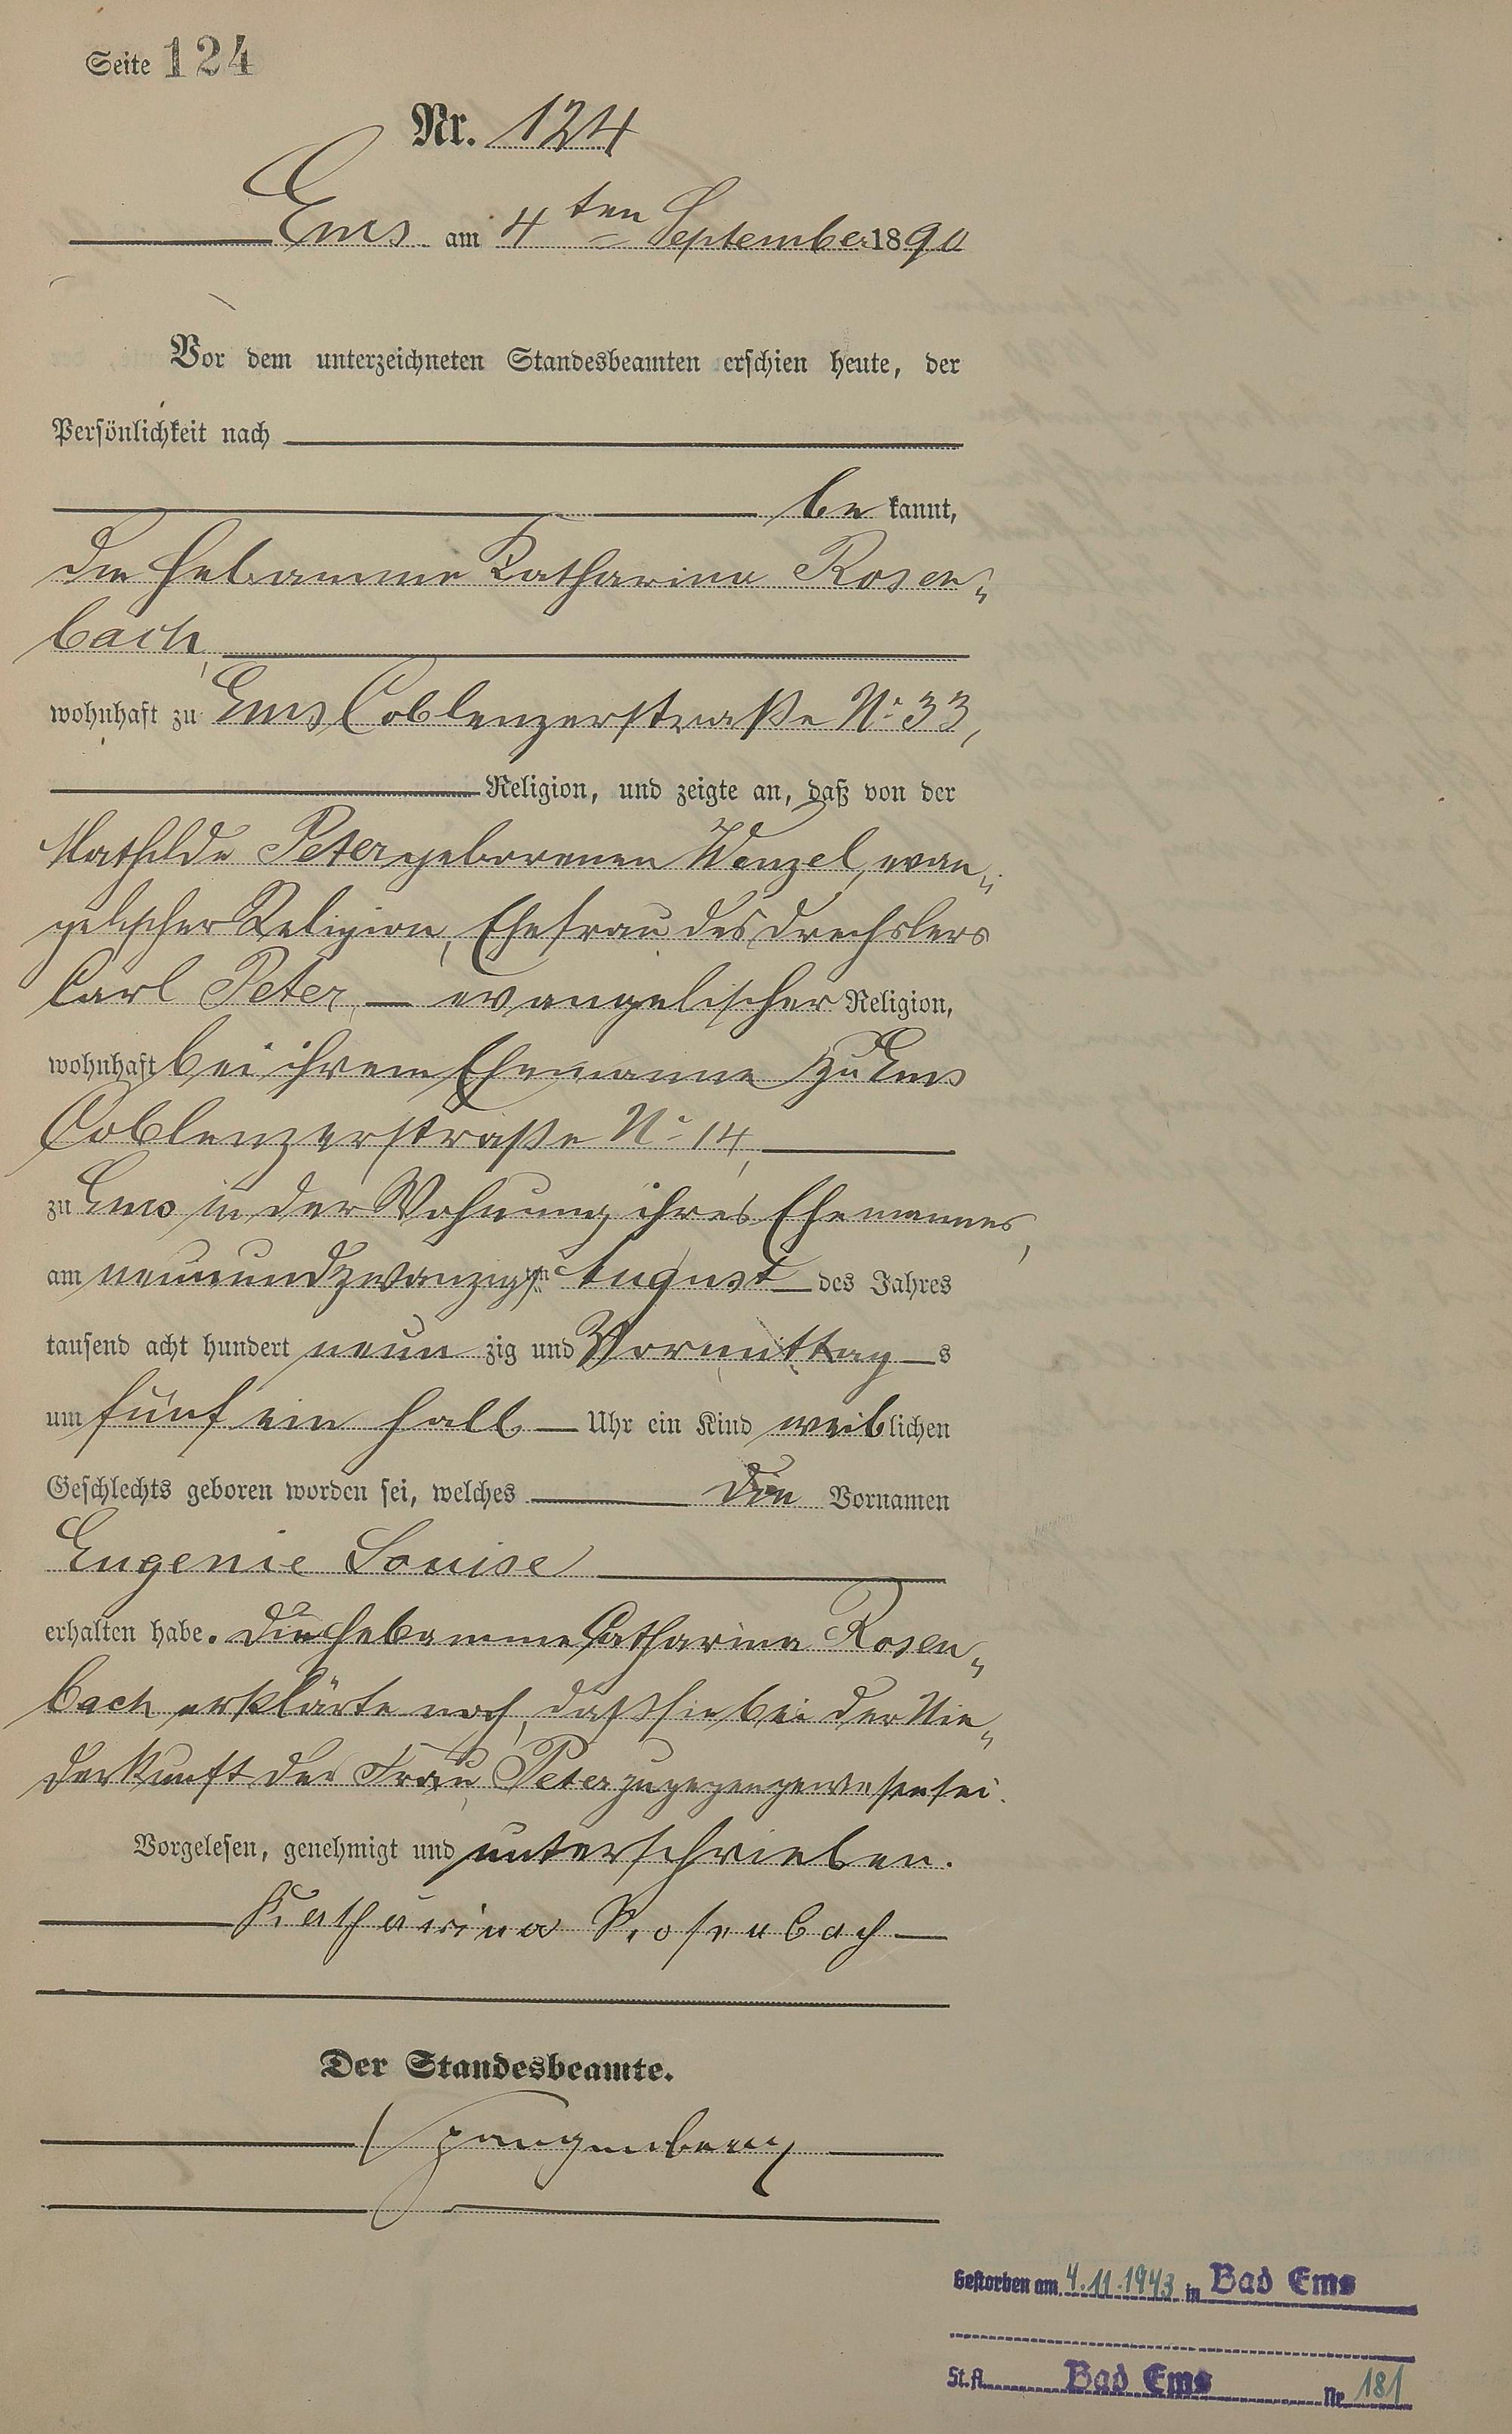 Seite 124
Nr. 124
Ems am 4ten September 1890
Vor dem unterzeichneten Standesbeamten erschien heute, der
Persönlichkeit nach
be kannt,
die Hebamme Katharina Rosen„
bach,
wohnhaft zu Ems Coblenzerstraße No 33,
Religion, und zeigte an, daß von der
Mathilde Peter geborenen Wenzel, evan„
gelischer Religion, Ehefrau des Drechslers
Carl Peter, — evangelischer Religion,
wohnhaft bei ihrem Ehemanne zu Ems
Coblenzerstraße No 14,
zu Ems in der Wohnung ihres Ehemannes,
am neunundzwanzigsten August des Jahres
tausend acht hundert neun zig und Vormittag s
um fünf ein halb Uhr ein Kind weiblichen
Geschlechts geboren worden sei, welches die Vornamen
Eugenie Louise
erhalten habe. Die Hebamme Catharina Rosen„
bach erklärte noch, daß sie bei der Nie„
derkunft der Frau Peter zugegen gewesen sei.
Vorgelesen, genehmigt und unterschrieben.
Katharina Rosenbach
Der Standesbeamte.
Spangenberg
Gestorben am 4.11.1943 in Bad Ems
St.A. Bad Ems Nr 181